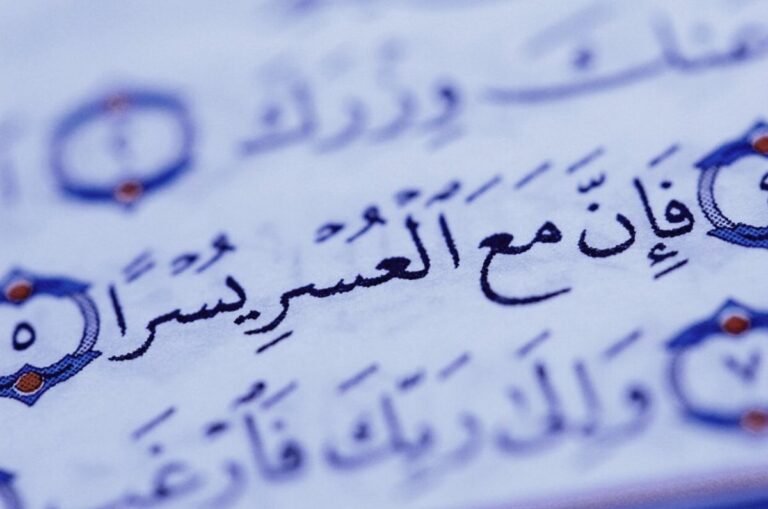 عنك وزرك ٢
٤ فَإِنَّ مَعَ ٱلْعُسْرِ يُسْرًا ٥
٧ وَإِلَىٰ رَبِّكَ فَٱرْغَب